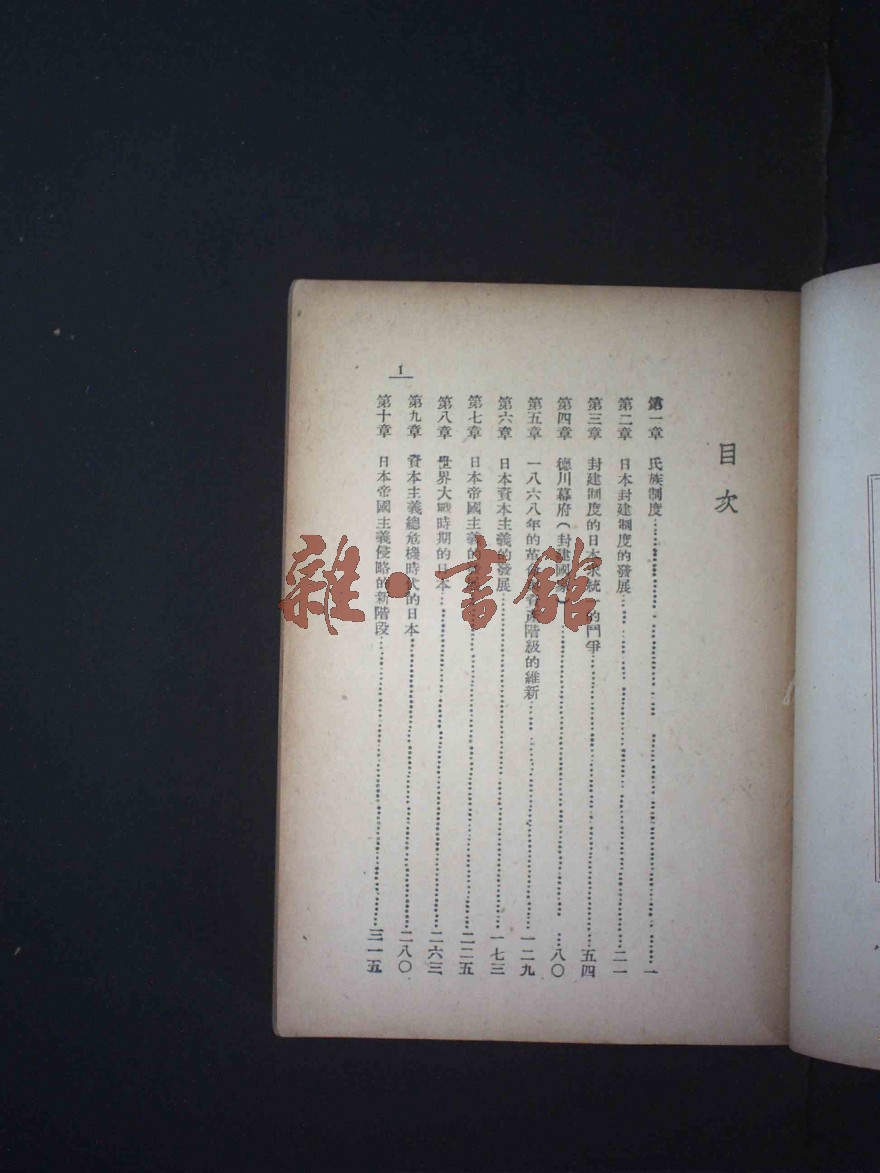 目次
第一章 氏族制度……一
第二章 日本封建制度的發展……二一
第三章 封建制度的日本求統一的鬥爭……五四
第四章 德川幕府(封建國家)……八〇
第五章 一八六八年的革命與資產階級的維新……一二九
第六章 日本資本主義的發展……一七三
第七章 日本帝國主義的……二二五
第八章 世界大戰時期的日本……二六三
第九章 資本主義總危機時代的日本……二八〇
第十章 日本帝國主義侵略的新階段……三一五
1
雜·書館